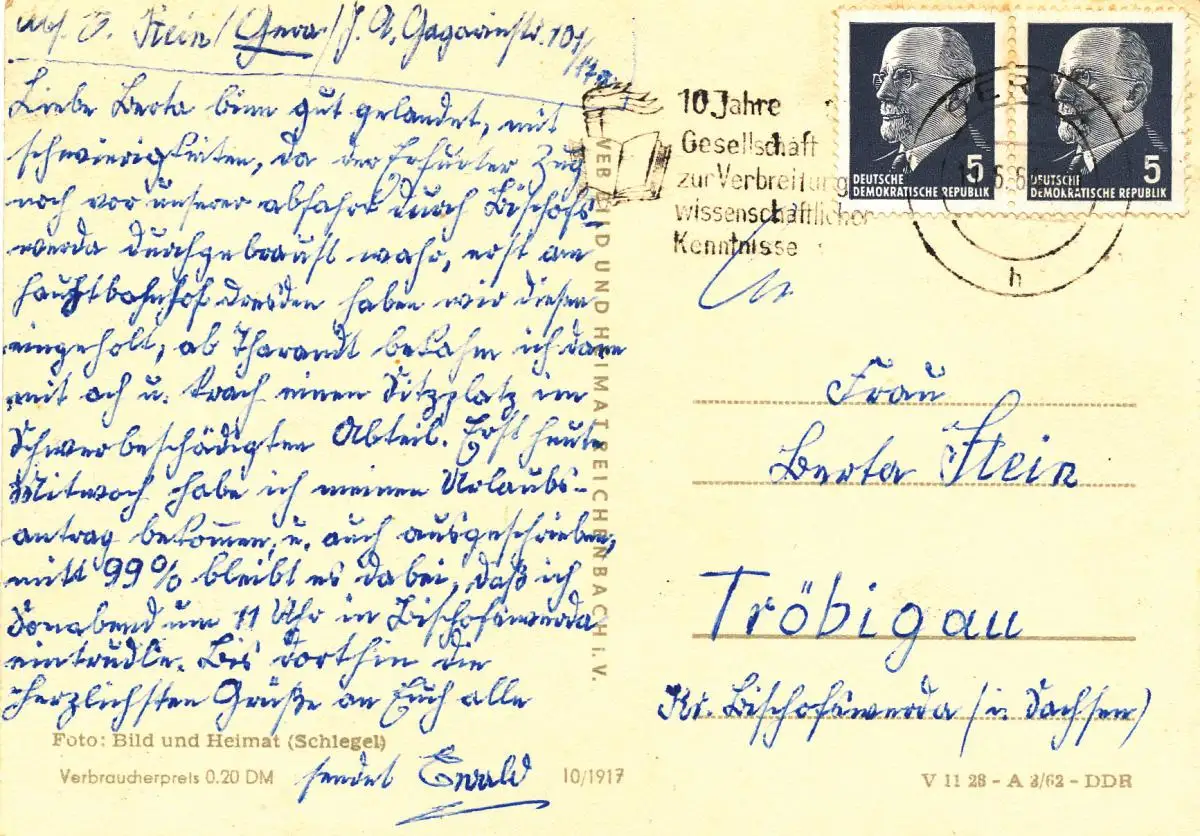 Abs. E. Stein / Gera / J. A. Gagarinstr. 101/
Liebe Berta binn gut gelandet, mit
schwierigkeiten, da der Erfurter Zug
noch vor unserer abfahrt durch Bischofs-
werda durchgebraust wahr, erst am
Hauptbahnhof Dresden haben wir diesen
eingeholt, ab Tharandt bekahm ich dann
mit ach u. krach einen Sitzplatz im
Schwerbeschädigten Abteil. Erst heute
Mitwoch habe ich meinen Urlaubs-
antrag bekommen, u. auch ausgeschrieben,
mitt 99% bleibt es dabei, daß ich
Sonabend um 11 Uhr in Bischofswerda
eintrudle. Bis dorthin die
herzlichsten Grüße an Euch alle
sendet Ewald
Foto: Bild und Heimat (Schlegel)
Verbraucherpreis 0.20 DM
10/1917
VEB BILD UND HEIMAT REICHENBACH I. V.
10 Jahre
Gesellschaft
zur Verbreitung
wissenschaftlicher
Kenntnisse
5
DEUTSCHE
DEMOKRATISCHE REPUBLIK
5
DEUTSCHE
DEMOKRATISCHE REPUBLIK
h
Frau
Berta Stein
Tröbigau
Kr. Bischofswerda (i. Sachsen)
V 11 28 - A 3/62 - DDR